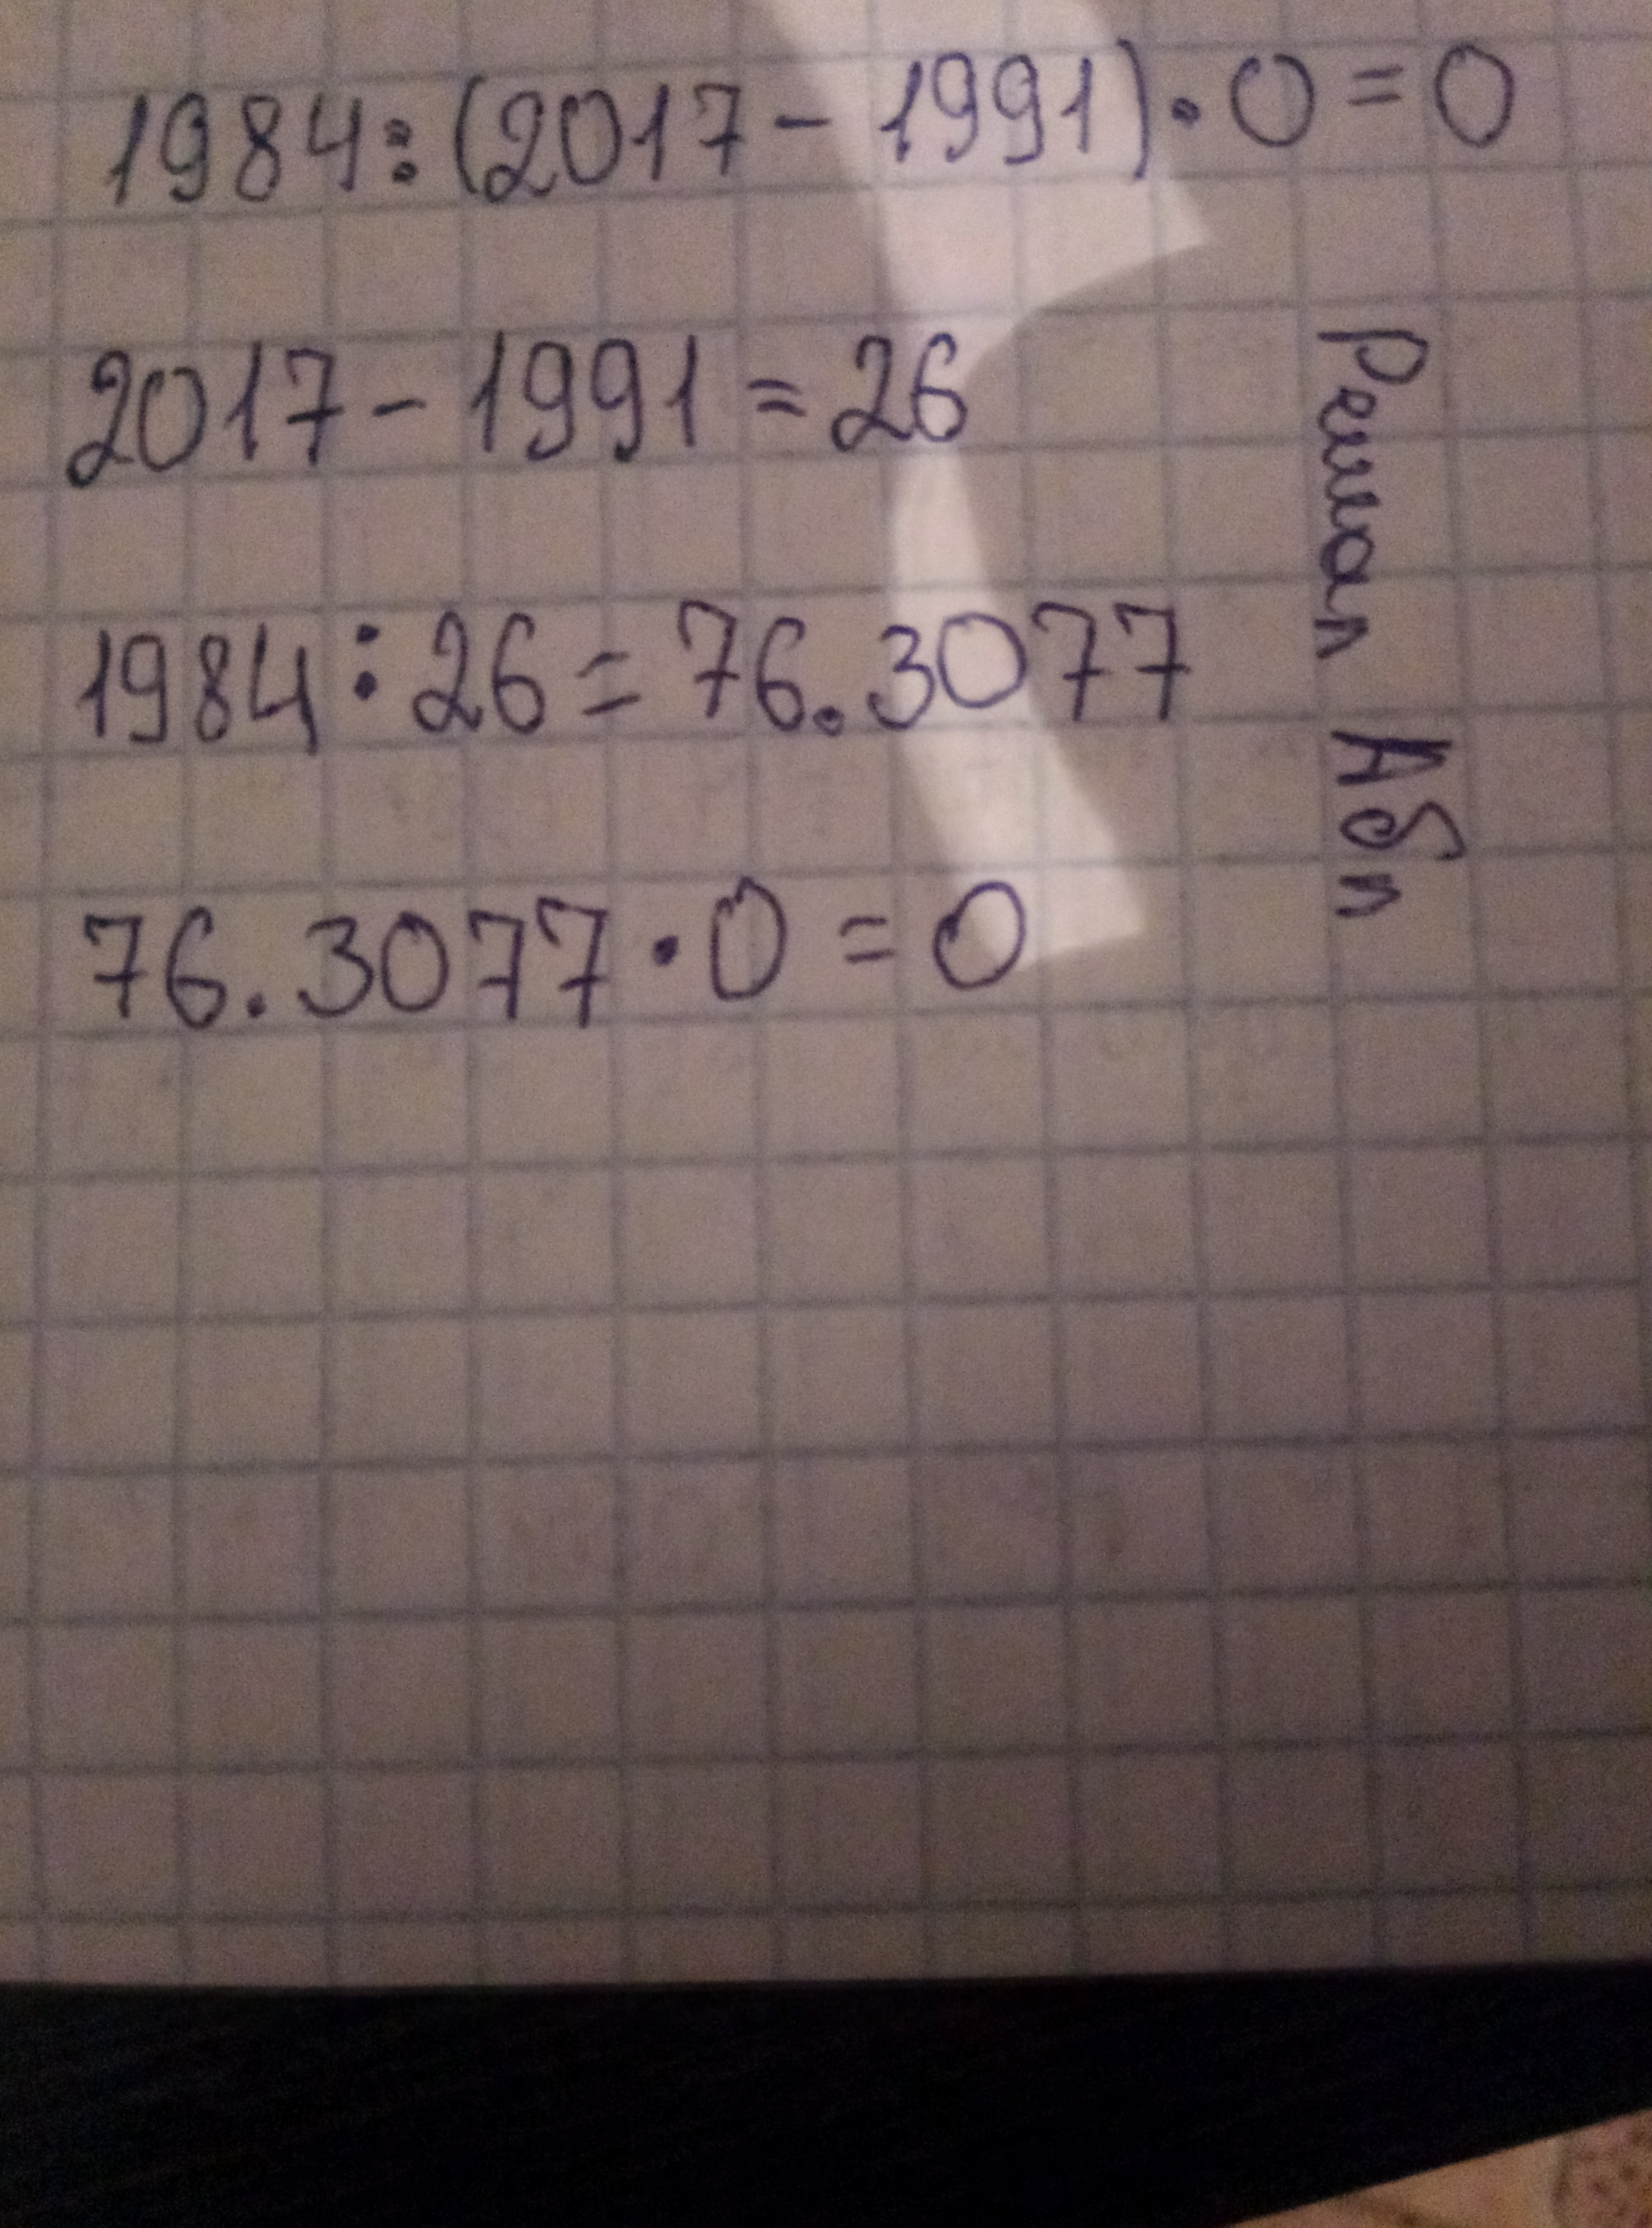 1984:(2017-1991)·0=0
2017-1991=26
1984:26=76.3077
76.3077·0=0
Решал Абл